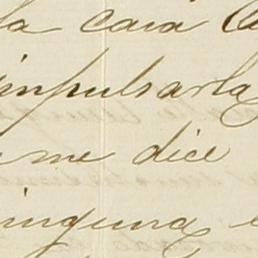 la cara
impulsarla
me dice
ninguna